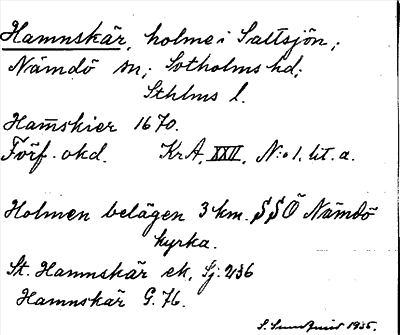 Hamnskär, holme i Saltsjön;
Nämdö sn; Sotholms hd;
Sthlms l.
Ham̄skier 1670.
Förf. okd. KrA, XXVI, N:o 1. lit. a.
Holmen belägen 3 km. SSÖ Nämdö
kyrka.
St. Hamnskär ek. Sj: 236
Hamnskär G. 76.
S. 1935.